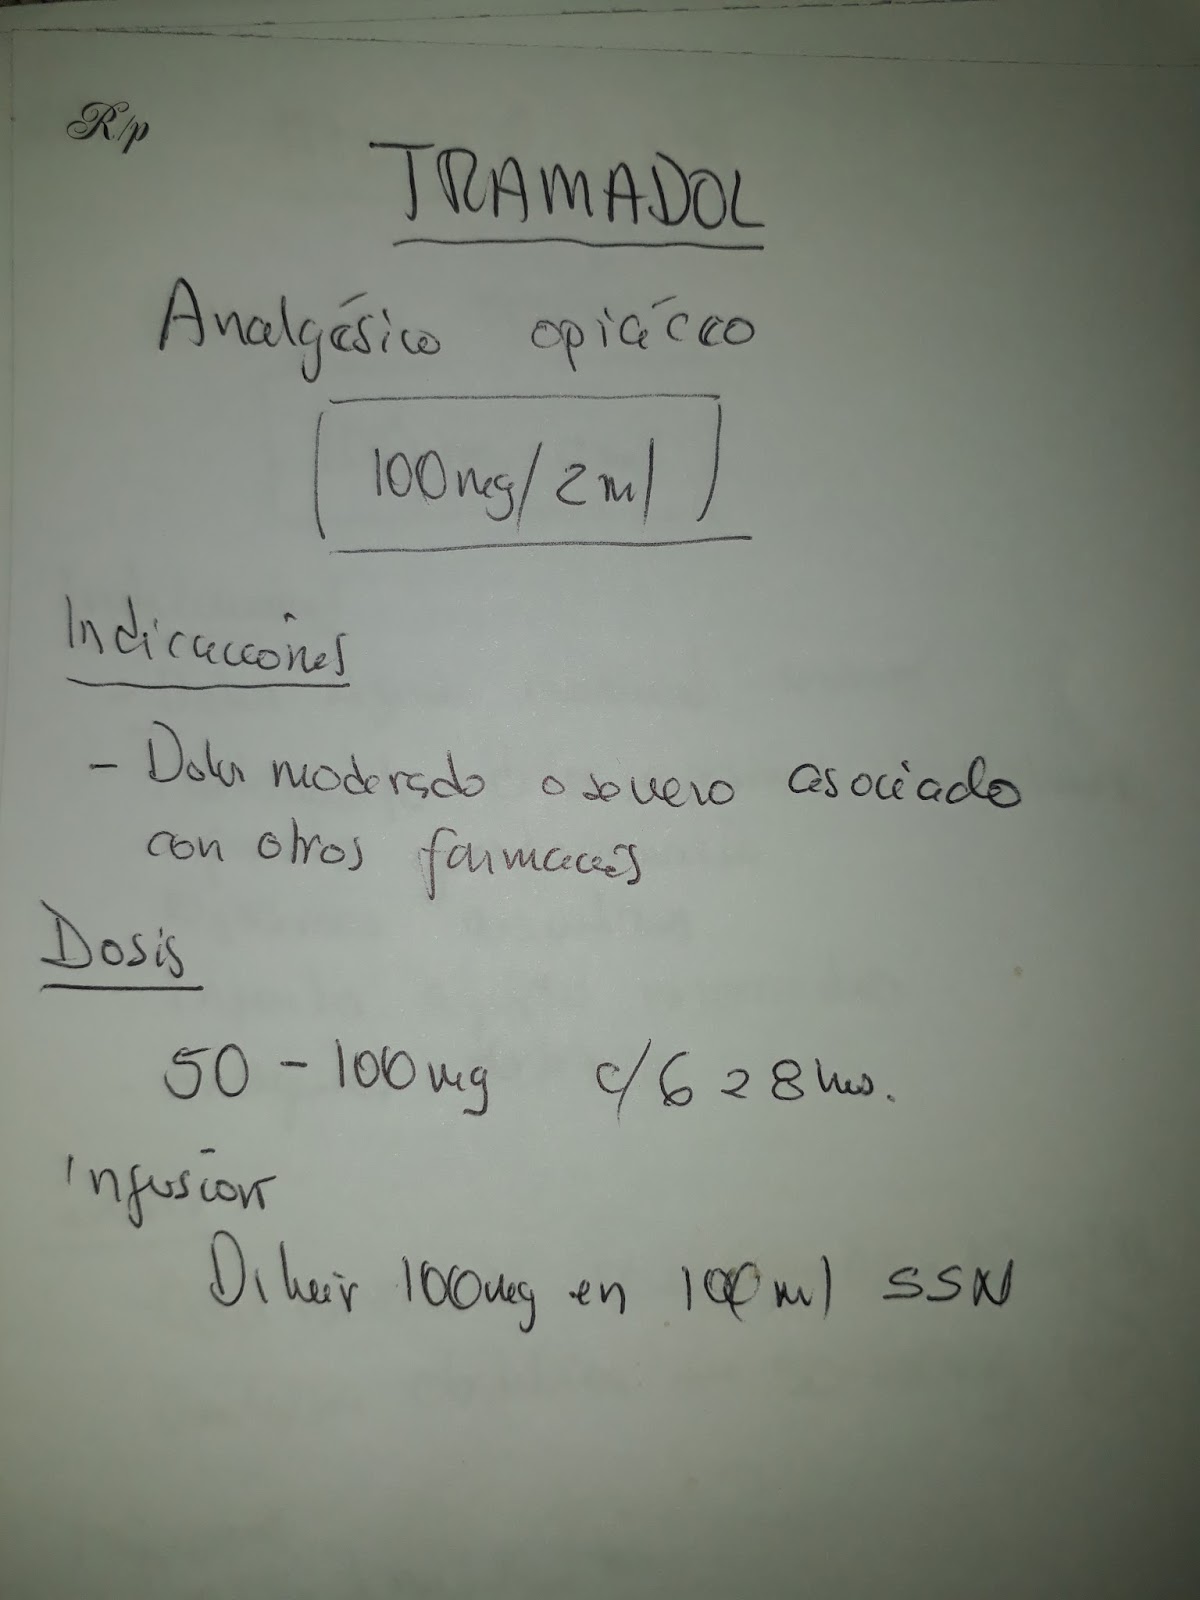 R/p
TRAMADOL
Analgésico opiáceo
100mg/2ml
Indicaciones
- Dolor moderado o severo asociado
con otros farmacos
Dosis
50 - 100mg c/6 a 8 hrs.
infusión
Diluir 100mg en 100ml SSN